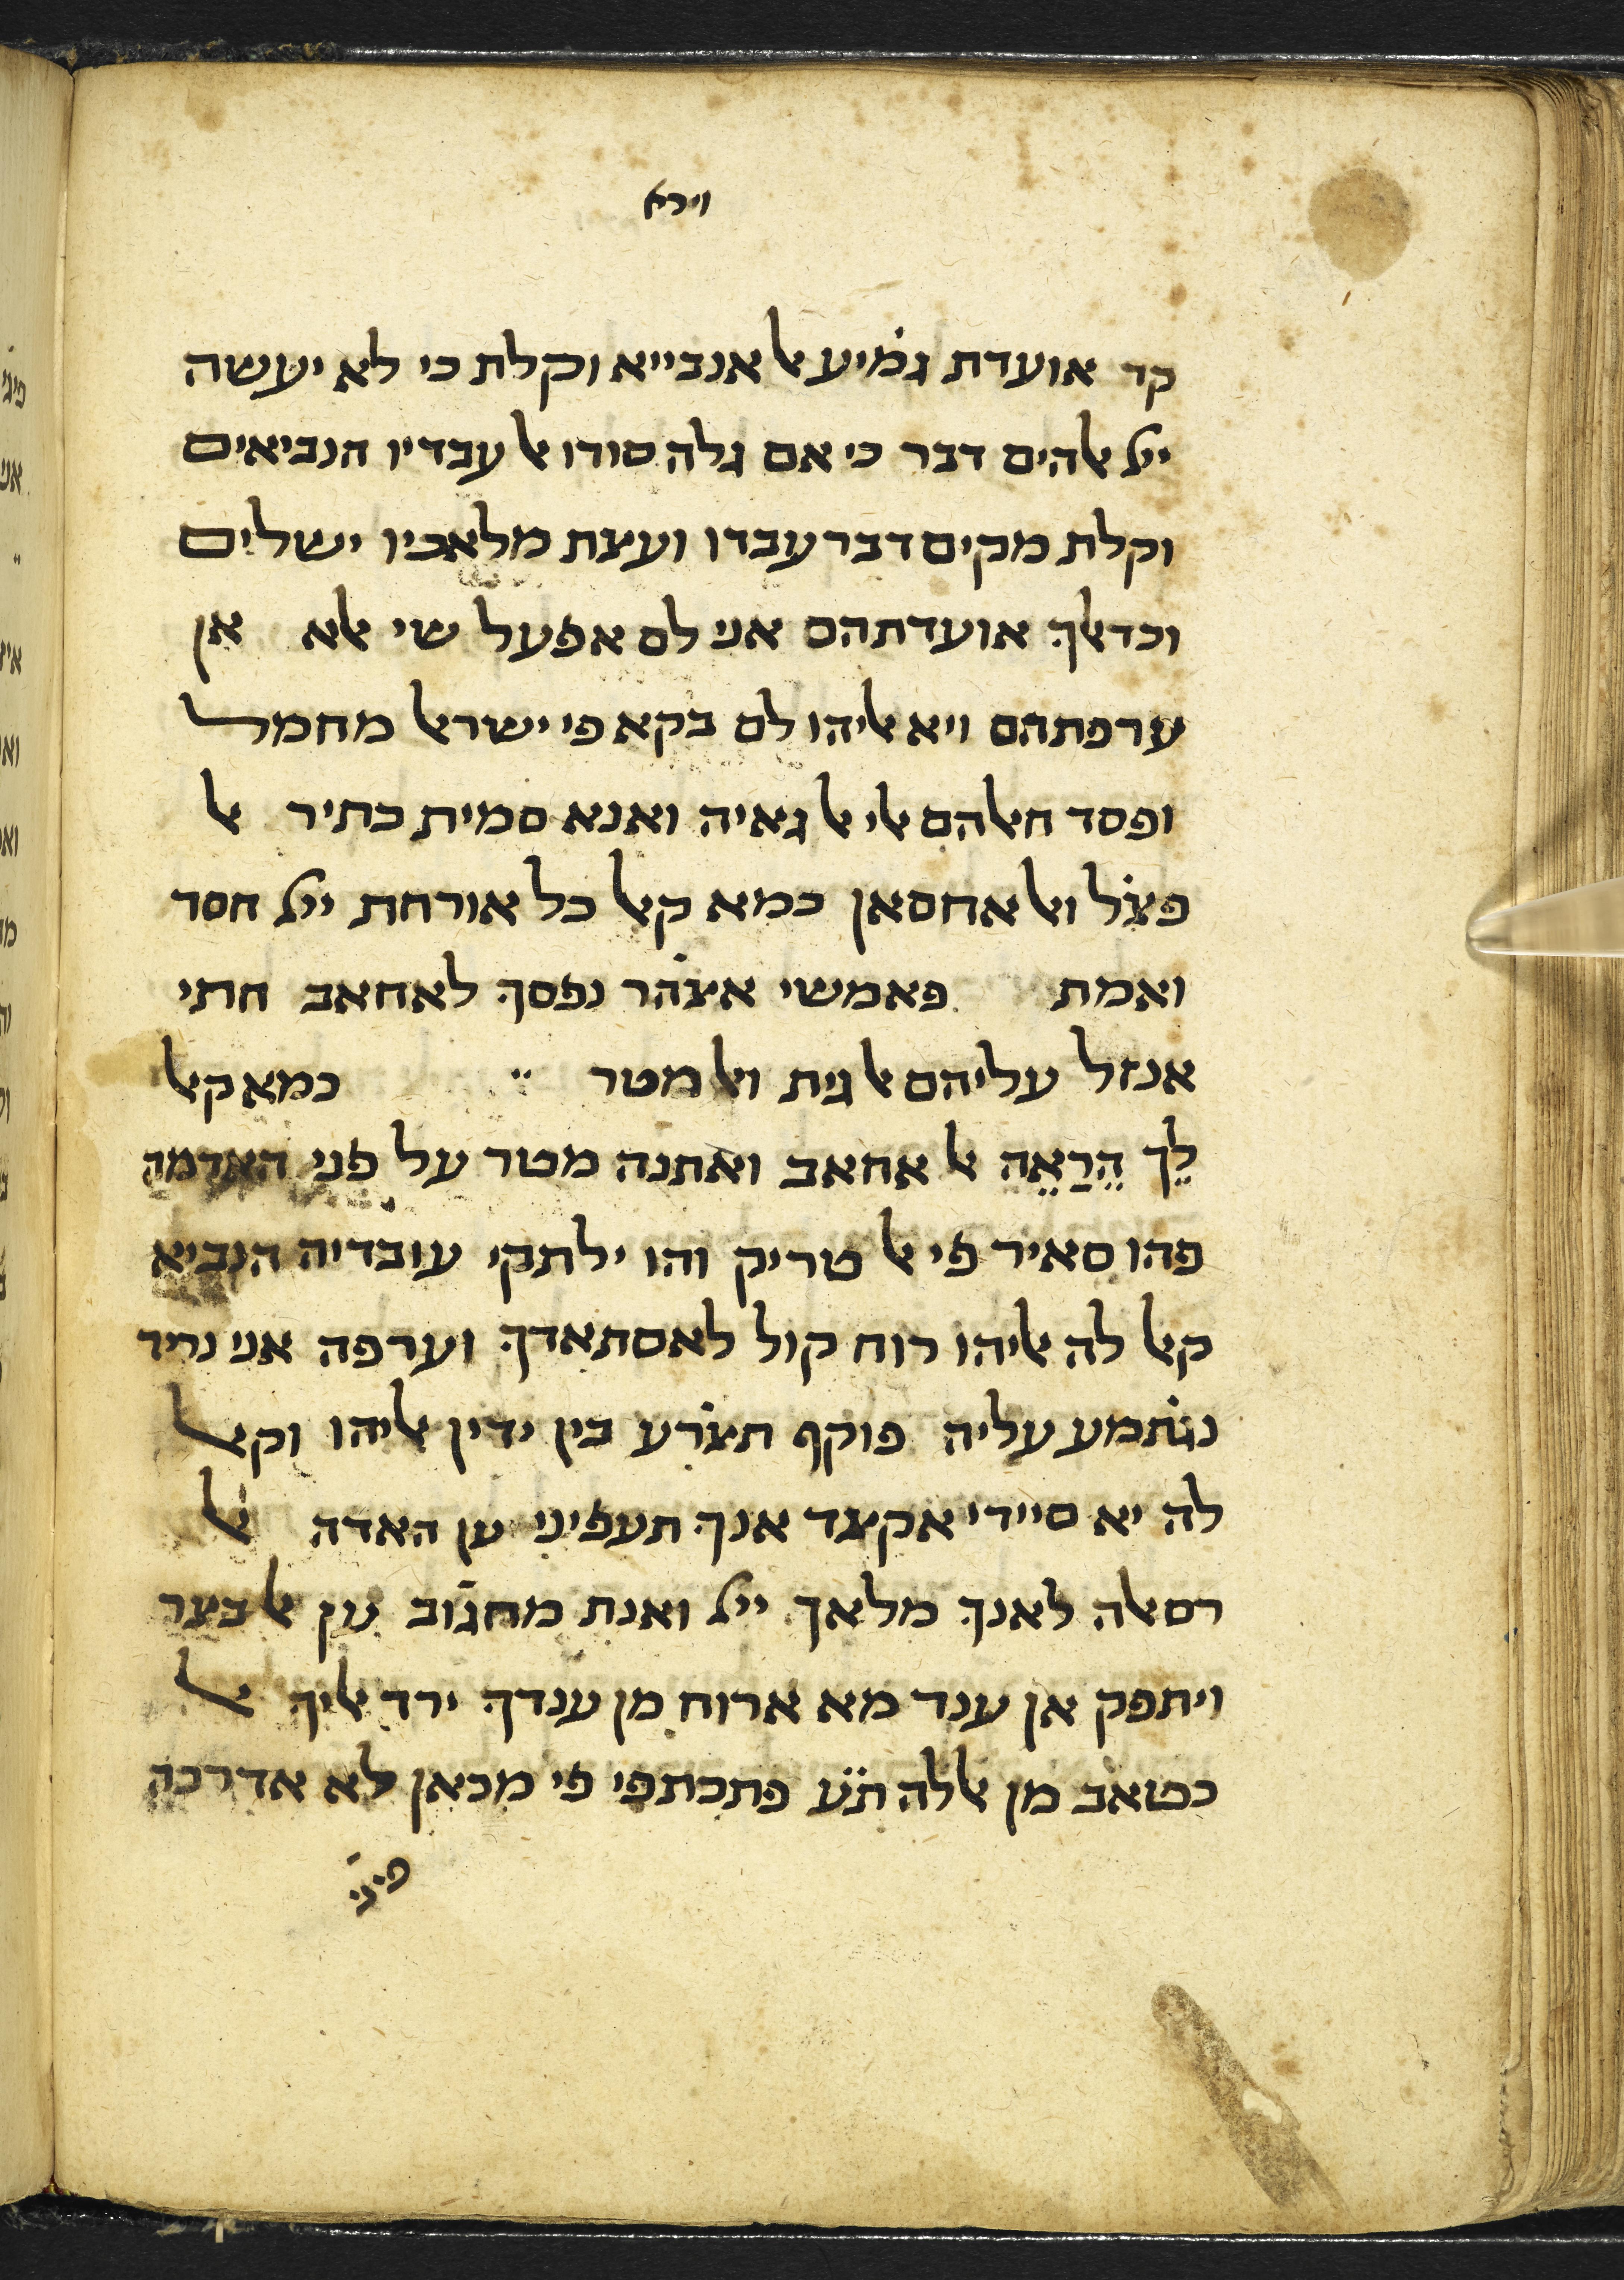 וירא
קד אועדת גׄמיע אלאנבייא וקלת כי לא יעשה
ייי אלהים דבר כי אם גלה סודו אל עבדיו הנביאים
וקלת מקים דבר עבדו ועצת מלאכיו ישלים
וכדאלך אועדתהם אני לם אפעל שי אלא אן
ערפתהם ויא אליהו לם בקא פי ישראל מחמל
ופסד חאלהם אלי אלגאיה ואנא סמית כתיר אל
פצׄל ואלאחסאן כמא קאל כל אורחת ייי חסד
ואמת פאמשי אצׄהר נפסך לאחאב חתי
אנזל עליהם אלגית ואלמטר כמא קאל
לֵךְ הֵרַאֵה אל אחאב ואתנה מטר על פני האדמה
פהו סאיר פי אלטריק והו ילתקי עובדיה הנביא
קאל לה אליהו רוח קול לאסתאדך וערפה אני נריד
נגׄתמע עליה פוקף תצׄרע בין ידין אליהו וקאל
לה יא סיידי אקצד אנך תעפיני ען האדה אל
רסאלה לאנך מלאך ייי ואנת מחגׄוב ען אלבצר
ויתפק אן ענד מא ארוח מן ענדך ירד אליך אל
כטאב מן אללה תׄעׄ פתכתפי פי מכאן לא אדרכה
פיגׄי